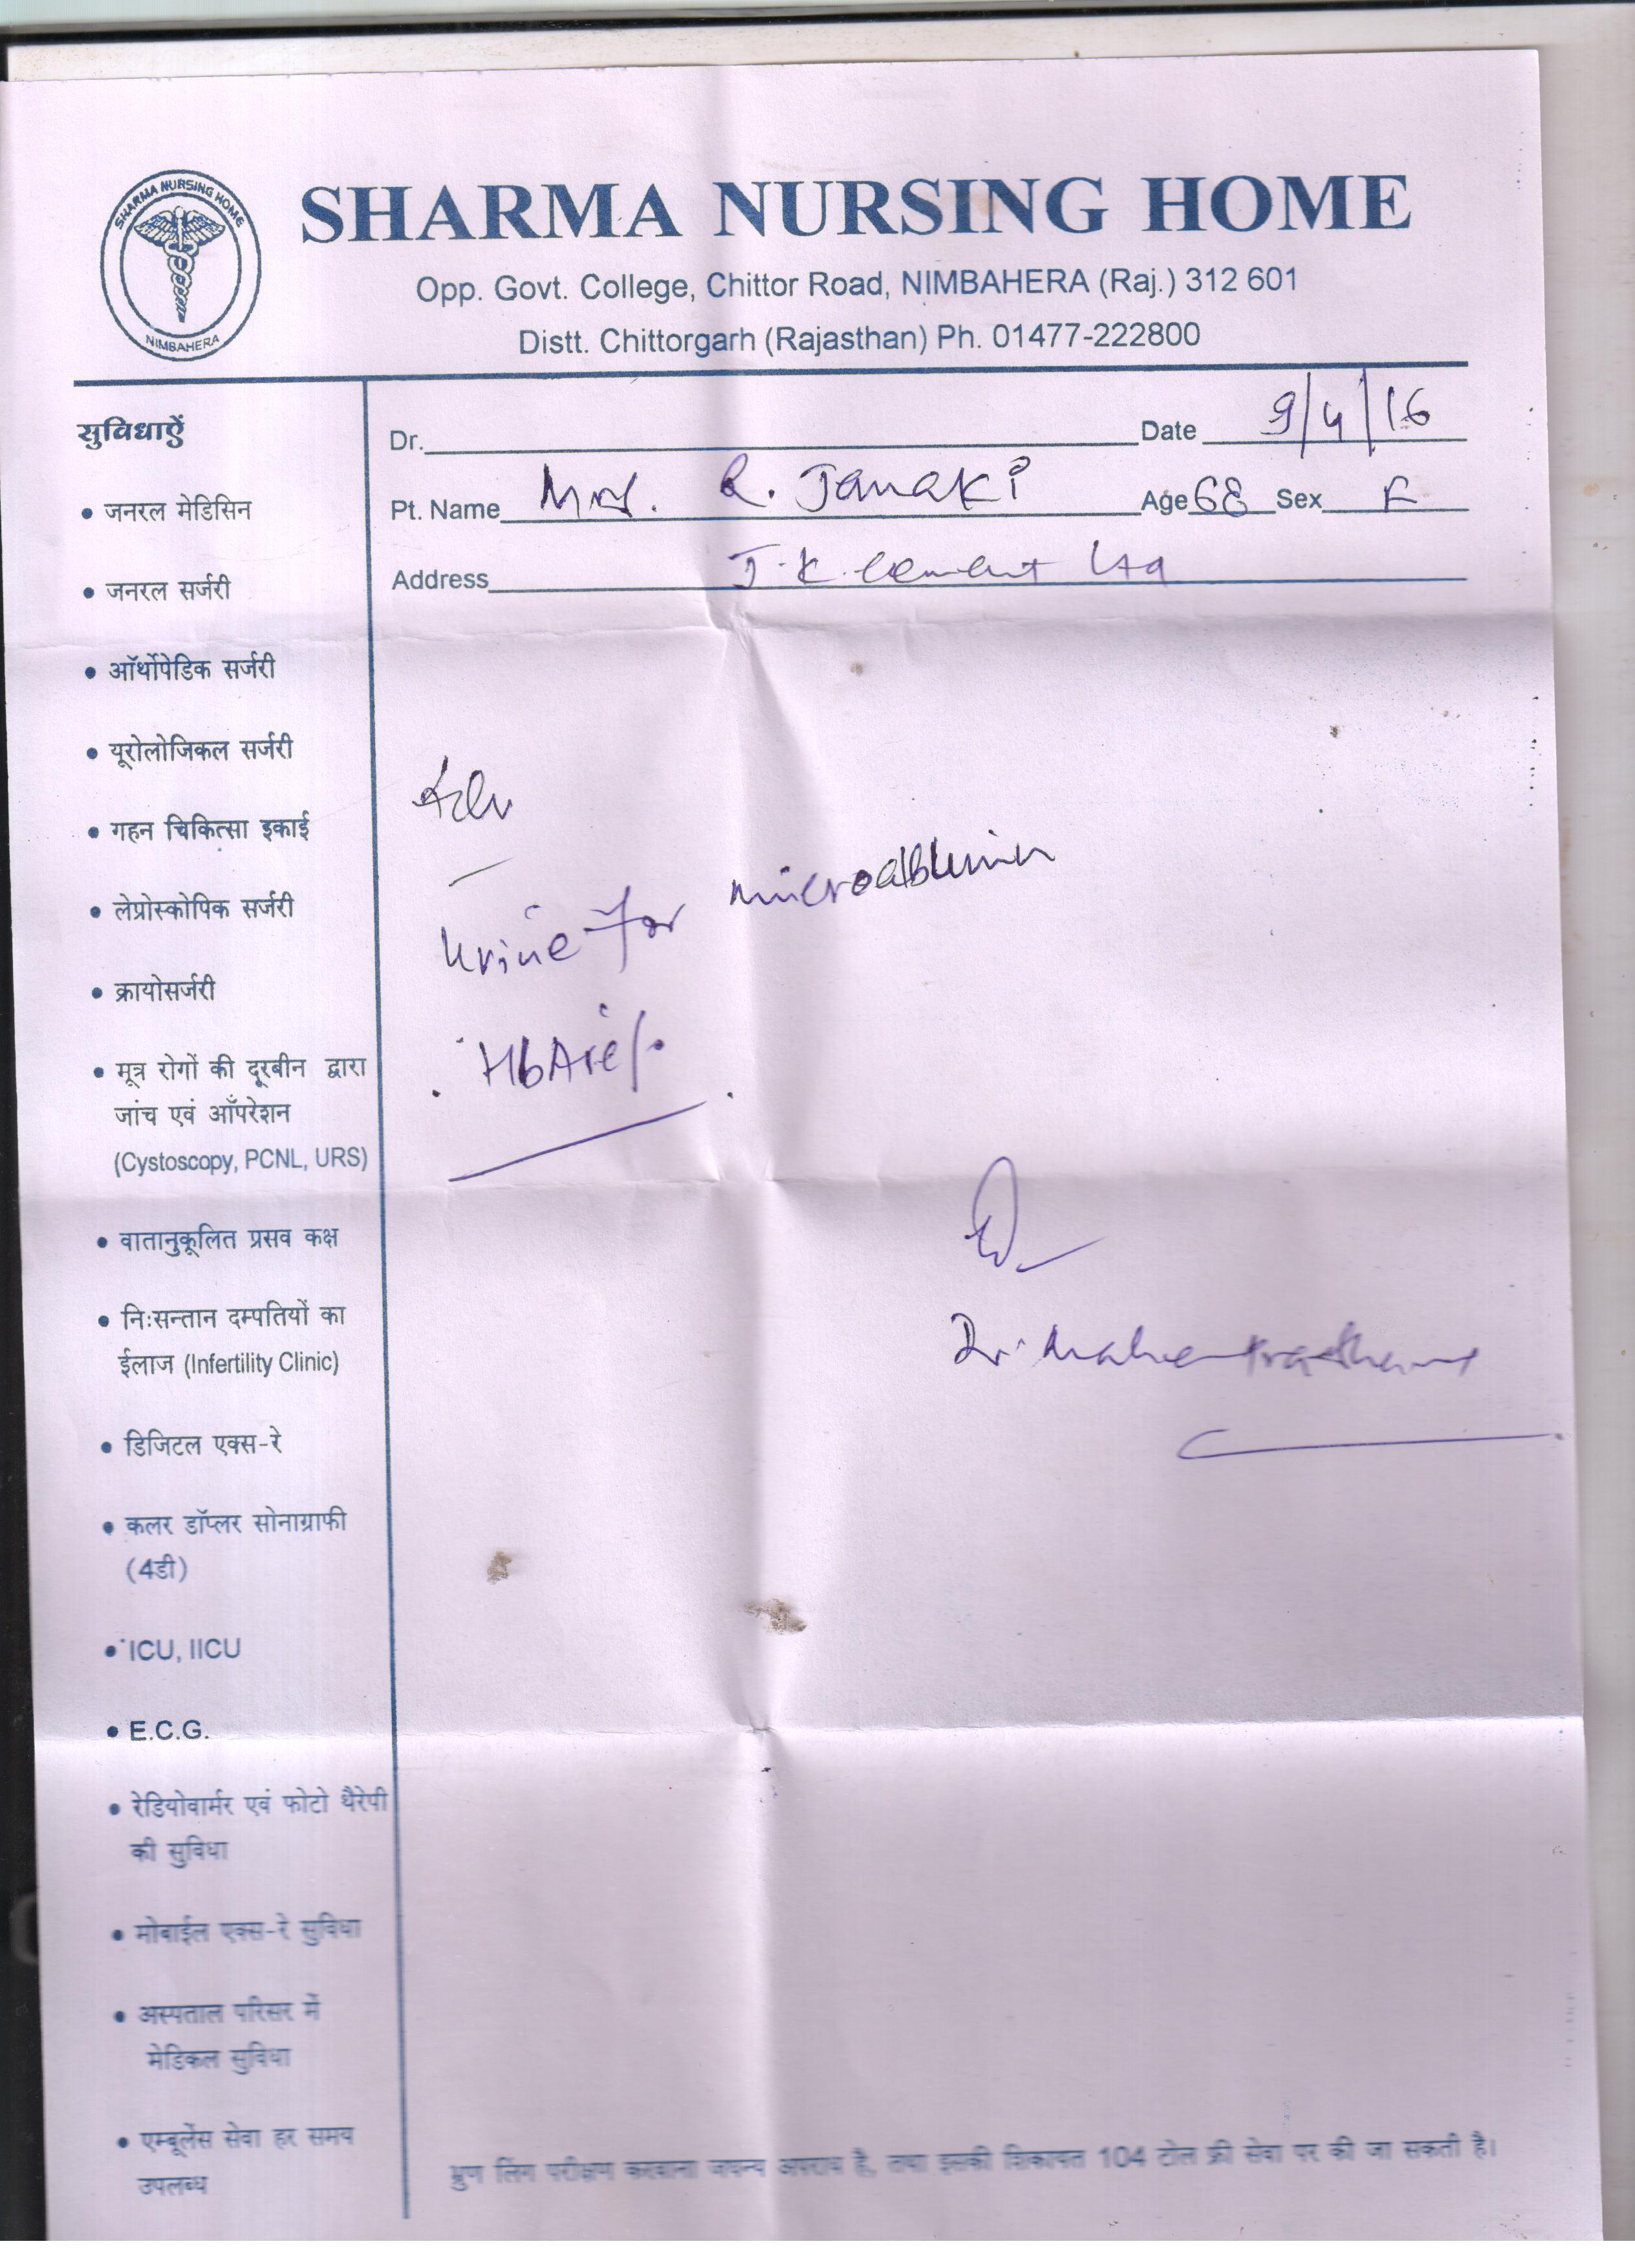 SHARMA NURSING HOME
NIMBAHERA
SHARMA NURSING HOME
Opp. Govt. College, Chittor Road, NIMBAHERA (Raj.) 312 601
Distt. Chittorgarh (Rajasthan) Ph. 01477-222800
Dr.
Date 9/4/16
Pt. Name Mrs. R. Janaki Age 68 Sex F
Address J.K. Cement Ltd
सुविधाऐं
• जनरल मेडिसिन
• जनरल सर्जरी
• ऑर्थोपेडिक सर्जरी
• यूरोलोजिकल सर्जरी
• गहन चिकित्सा इकाई
• लेप्रोस्कोपिक सर्जरी
• क्रायोसर्जरी
• मूत्र रोगों की दूरबीन द्वारा
जांच एवं ऑंपरेशन
(Cystoscopy, PCNL, URS)
• वातानुकूलित प्रसव कक्ष
• निःसन्तान दम्पतियों का
ईलाज (Infertility Clinic)
• डिजिटल एक्स-रे
• कलर डॉप्लर सोनाग्राफी
(4डी)
• ICU, IICU
• E.C.G.
• रेडियोवार्मर एवं फोटो थैरेपी
की सुविधा
• मोबाईल एक्स-रे सुविधा
• अस्पताल परिसर में
मेडिकल सुविधा
• एम्बूलेंस सेवा हर समय
उपलब्ध
Adv
Urine for microalbumin
HbA1c
Dr.
भ्रुण लिंग परीक्षण करवाना जघन्य अपराध है, तथा इसकी शिकायत 104 टोल फ्री सेवा पर की जा सकती है।